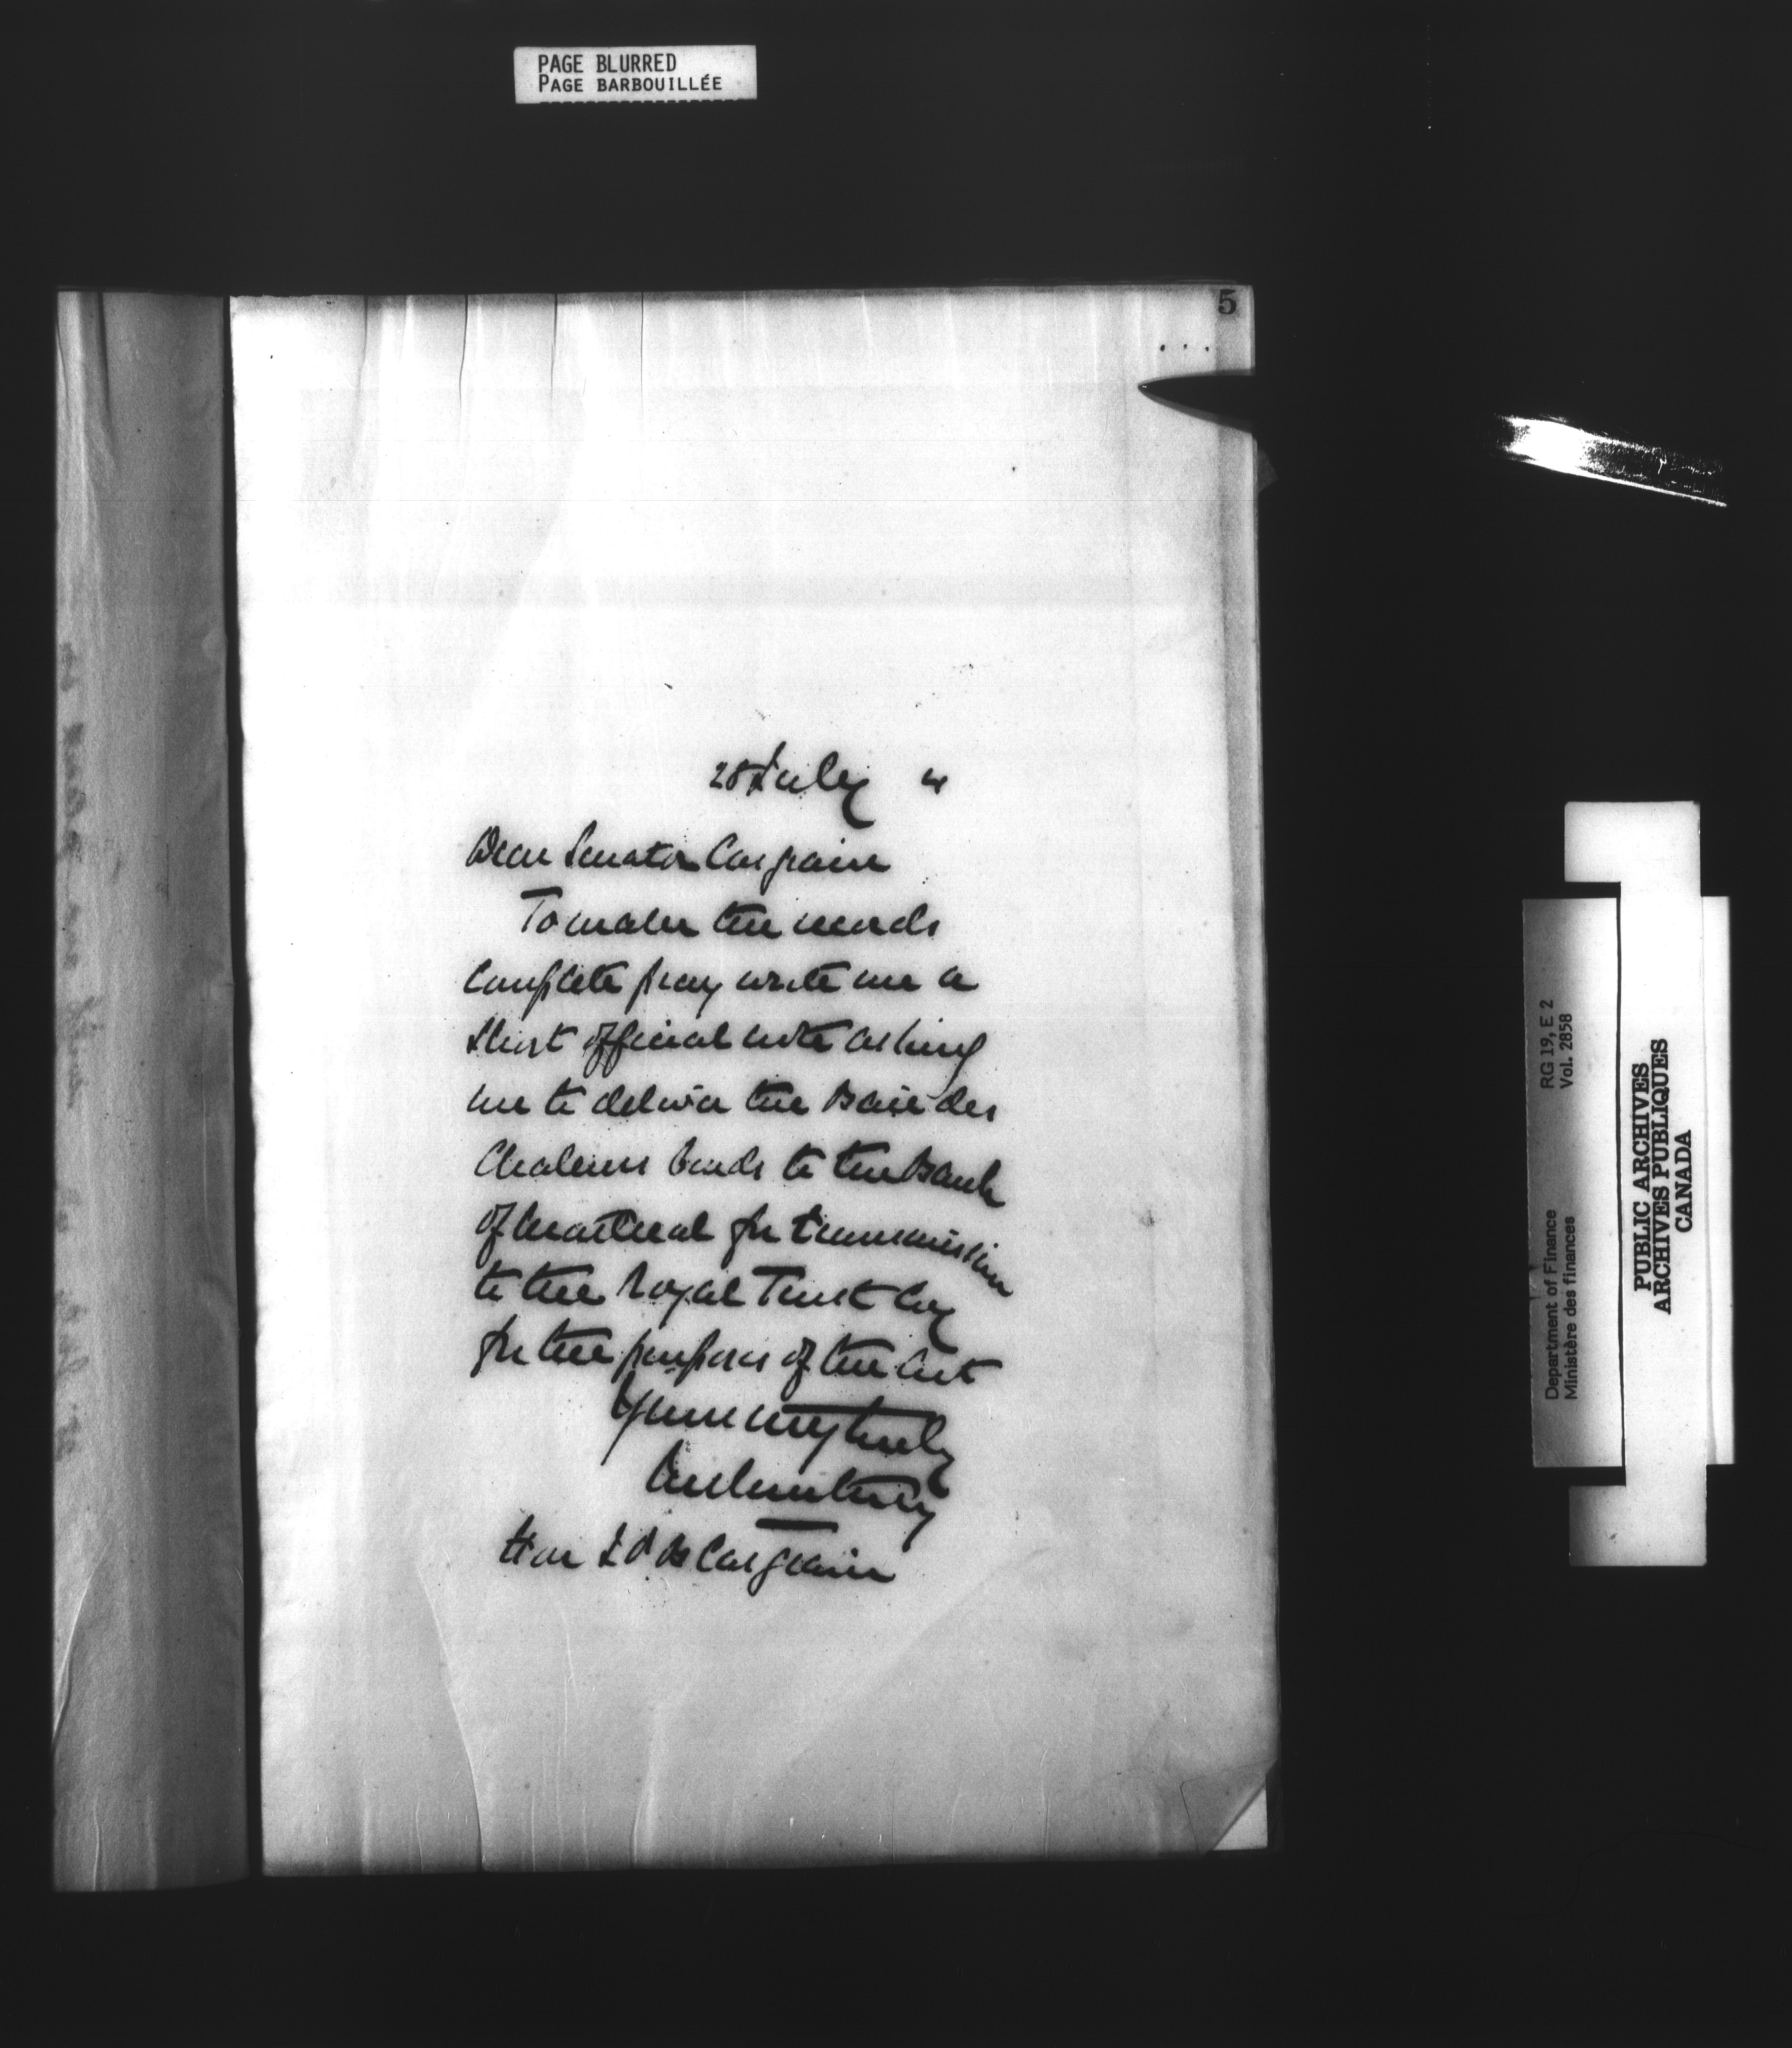 PAGE BLURRED
PAGE BARBOUILLÉE
5
28 July
Dear Senator Casgrain
To make the records
complete pray write me a
short official note asking
me to deliver the Baie des
Chaleurs bonds to the Bank
of Montreal for transmission
to the Royal Trust Coy
for the purposes of the Act
Yours very truly
JM Courtney
Hon J P B Casgrain
RG 19, E 2
Vol. 2858
Department of Finance
Ministère des finances
PUBLIC ARCHIVES
ARCHIVES PUBLIQUES
CANADA